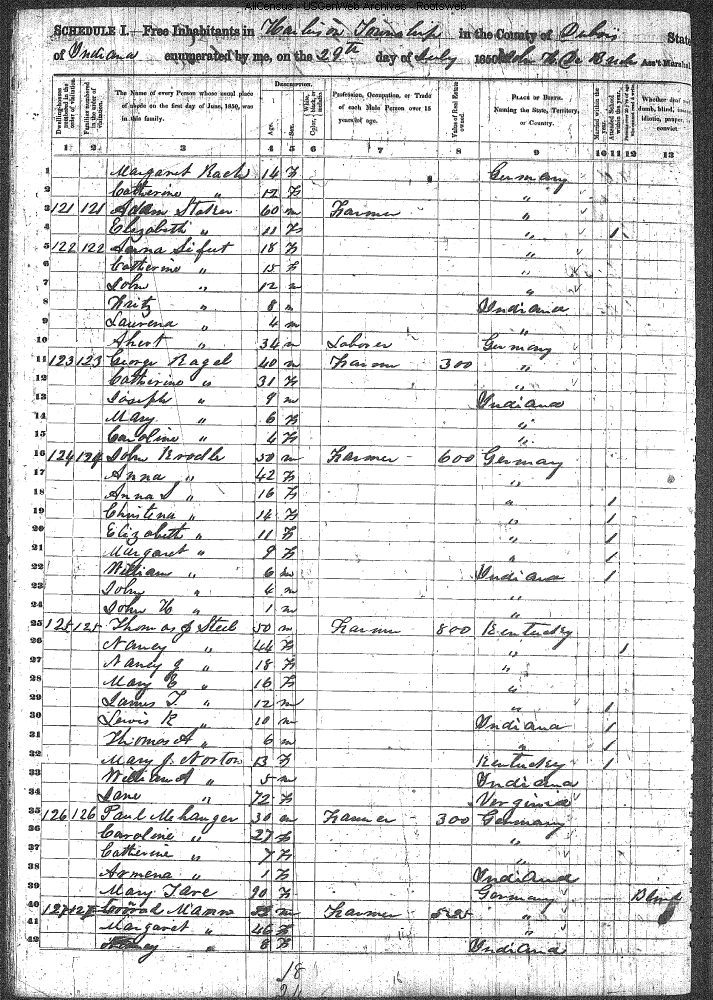 AllCensus - USGenWeb Archives - Rootsweb
SCHEDULE I.—Free Inhabitants in Harbison Township in the County of Dubois State
of Indiana enumerated by me, on the 29th day of July 1850. Ass't Marshal
Dwelling-houses numbered in the order of visitation. Families numbered in the order of visitation. The Name of every Person whose usual place of abode on the first day of June, 1850, was in this family. Description. Age. Sex. White, Color, black, or mulatto. Profession, Occupation, or Trade of each Male Person over 15 years of age. Value of Real Estate owned. Place of Birth. Naming the State, Territory, or Country. Married within the year. Attended School within the year. Whether deaf and dumb, blind, insane, idiotic, pauper, or convict
1 2 3 4 5 6 7 8 9 10 11 12 13
1 Margaret Rach 14 F Germany
2 Catherine " 12 F "
3 121 121 Adam Staker 60 m Farmer "
4 Elizabeth " 11 F " 1
5 122 122 Anna Sifert 18 F "
6 Catherine " 15 F "
7 John " 12 m "
8 Fritz " 8 m Indiana
9 " 4 m "
10 " 34 m Laborer Germany
11 123 123 George Ragel 40 m Farmer 300 "
12 Catherine " 31 F "
13 Joseph " 9 m Indiana
14 Mary " 6 F "
15 Caroline " 4 F "
16 124 124 John 50 m Farmer 600 Germany
17 Anna " 42 F "
18 Anna S " 16 F "
19 Christena " 14 F " 1
20 Elizabeth " 11 F " 1
21 Margaret " 9 F " 1
22 William " 6 m Indiana 1
23 John " 4 m "
24 John H " 1 m "
25 125 125 Thomas J Steel 50 m Farmer 800 Kentucky
26 Nancy " 44 F " 1
27 Nancy J " 18 F "
28 Mary E " 16 F "
29 James T. " 12 m " 1
30 Lewis R " 10 m Indiana 1
31 Thomas A " 6 m " 1
32 Mary J. Norton 13 F Kentucky 1
33 William A " 5 m Indiana
34 Jane " 72 F Verginia
35 126 126 Paul Mehanger 30 m Farmer 300 Germany
36 Caroline " 27 F "
37 Catherine " 7 F "
38 Armena " 1 F Indiana
39 Mary Tare 90 F Germany Blind
40 127 127 Conrad Mann m Farmer 525 "
41 Margaret " 46 F "
42 " 8 F Indiana
18
21